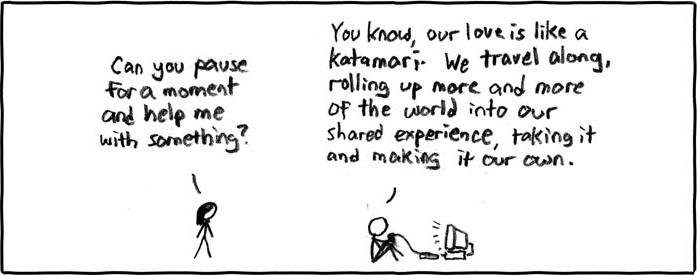 Can you pause
for a moment
and help me
with something?
You know, our love is like a
katamari. We travel along,
rolling up more and more
of the world into our
shared experience, taking it
and making it our own.